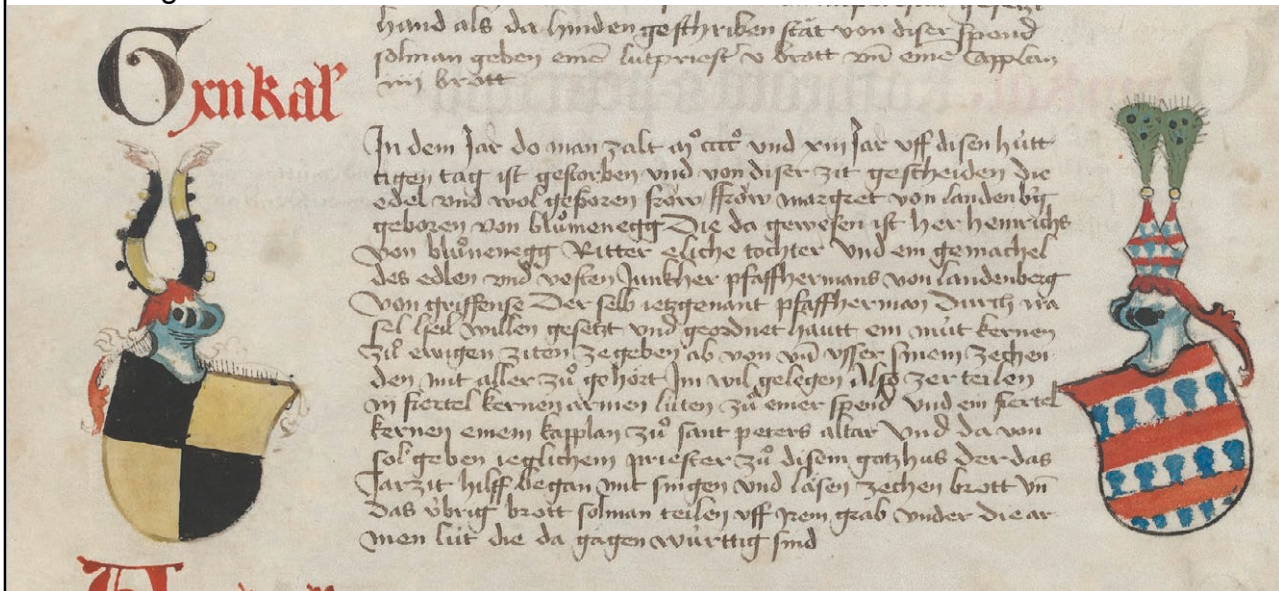 hand als da hinden geschriben stat von diser spend
solman geben eine lutpriest v brott vnd eine Capplan
iiij brott
G xvi kal
In dem Jar do man zalt mº ccccº vnd xiij Jar vff disen hüt
tigen tag ist gestorben vnd von diser zit gescheiden die
edel vnd wol geboren frow ffrow margret von landenb̾g
geboren von blůmenegg Die da gewesen ist her heinrichs
von blůmenegg Ritter eliche tochter vnd ein gemachel
des edlen vnd vesten Junkher pfaffhermans von landenberg
von griffense Der selb ietzgenant pfaffherman durch ira
sel heil willen gesetzt vnd geordnet hautt ein müt kernen
zů ewigen ziten ze geben ab von vn̄ vsser sinem zechen
den mit aller zů gehört Im wil gelegen Also zerteilen
iij fiertel kernen armen lüten zů einer spend vnd ein fiertel
kernen einem kapplan zů sant peters altar Vnd da von
sol geben ieglichem priester zů disem gotzhus der das
Jarzit hilff began mit singen vnd läsen zechen brott vn̄
Das übrig brott solman teilen vff irem grab vnder die ar
men lüt die da gägen württig sind